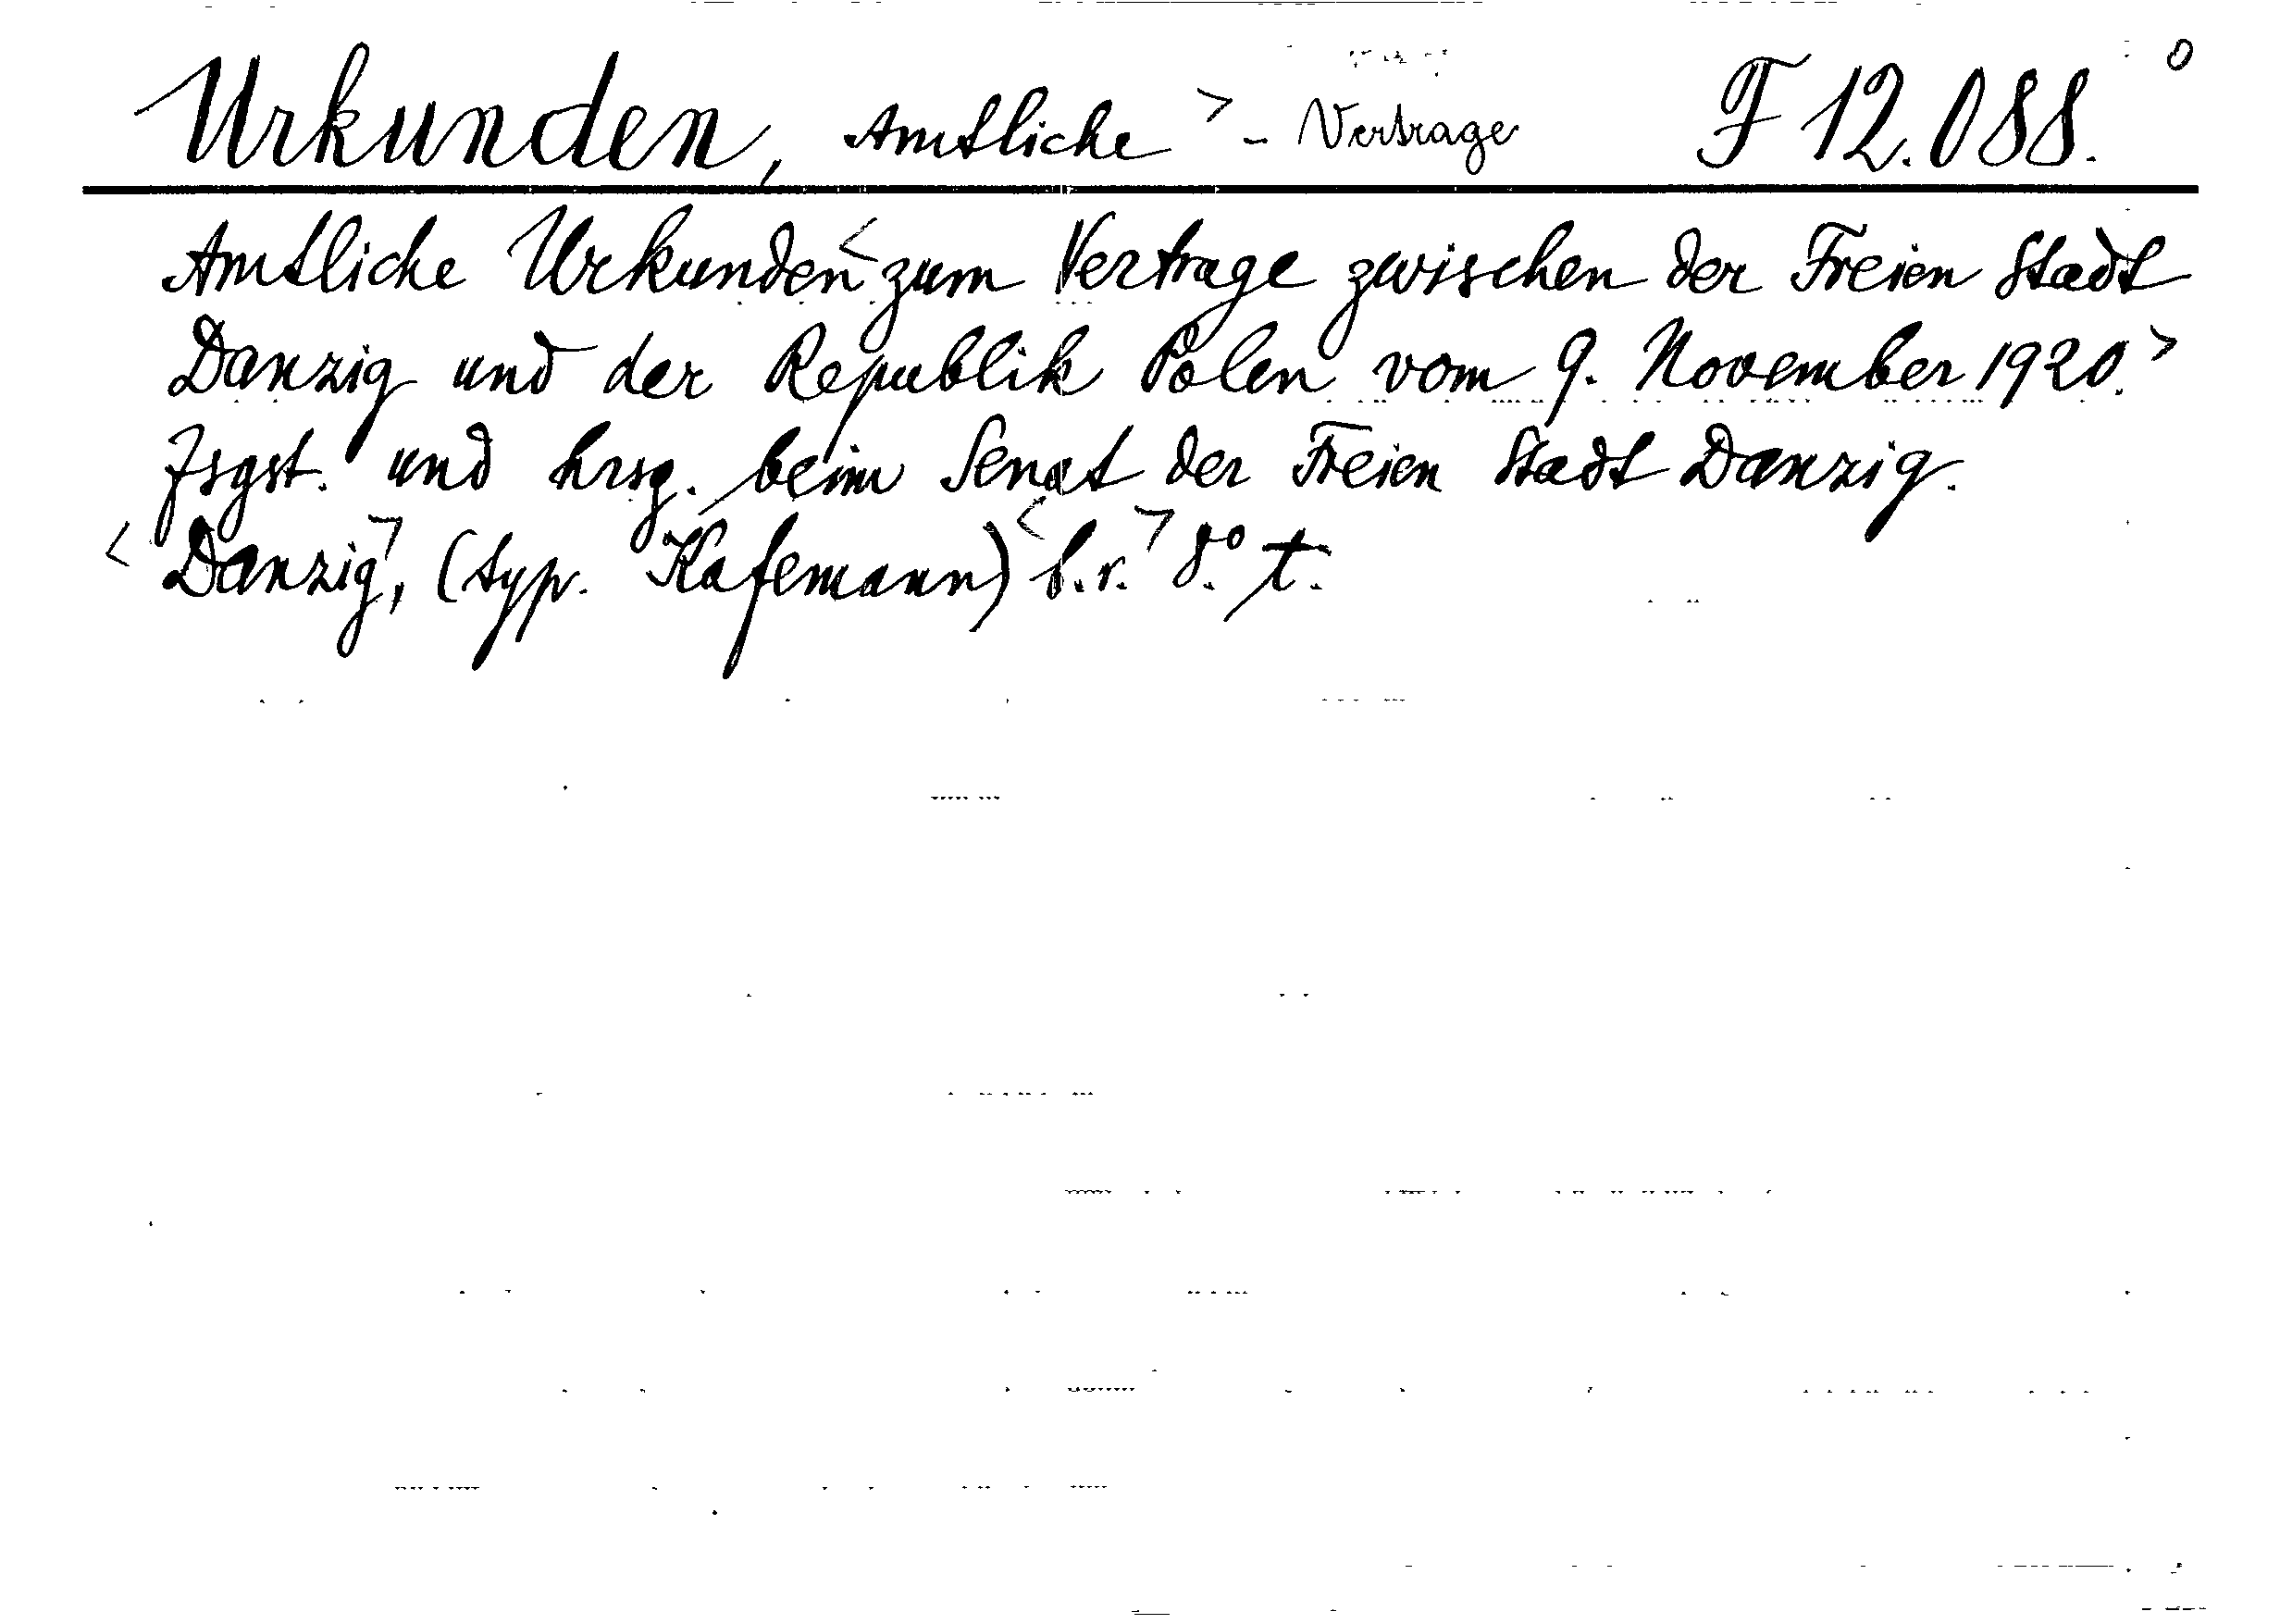 Urkunden, Amtliche > - Vertrage F 12.088. o
Amtliche Urkunden < zum Vertrage zwischen der Freien Stadt
Danzig und der Republik Polen vom 9. November 1920. >
Zsgst. und hrsg. beim Senat der Freien Stadt Danzig.
< Danzig >, (typ. Kafemann) < b.r. > 8.° t.